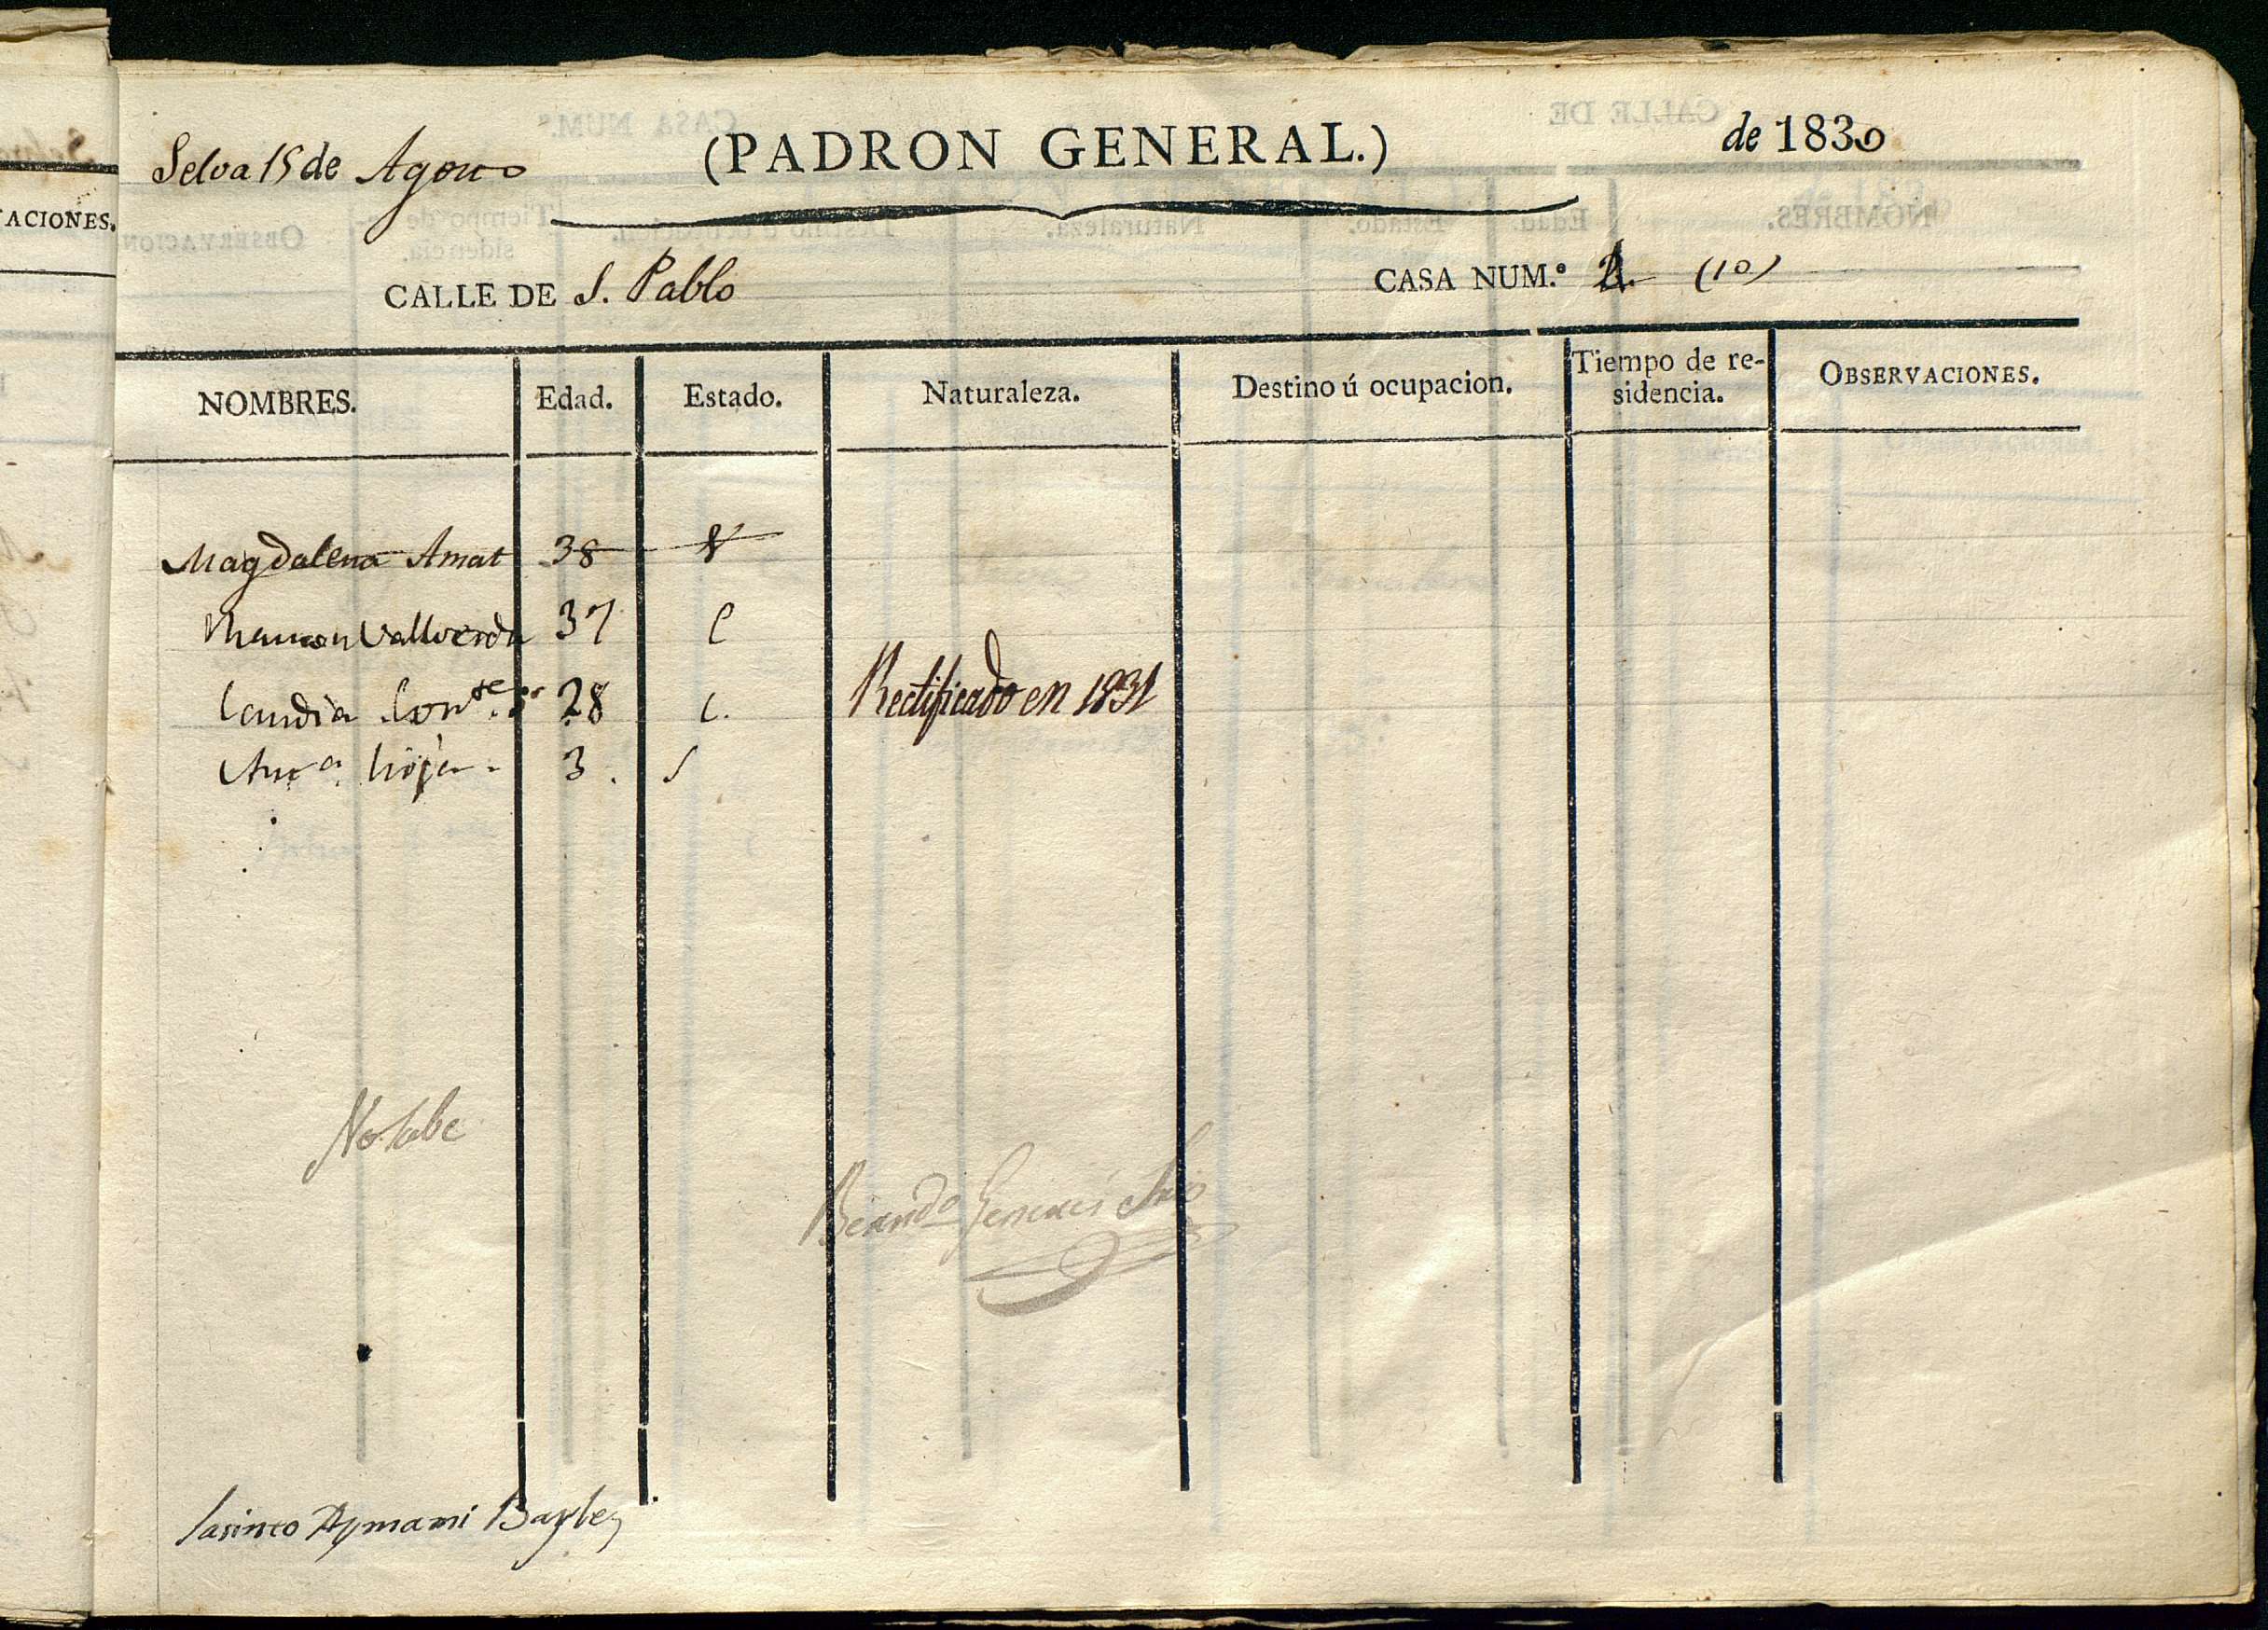 Selva 15 de Agosto (PADRON GENERAL.) de 1830
CALLE DE S. Pablo CASA NUM.º (10)
NOMBRES. Edad. Estado. Naturaleza. Destino ú ocupacion. Tiempo de residencia. OBSERVACIONES.
Magdalena Amat 38 V
Ramon Vallverdu 37 C
Candia Conte 28 C.
Rectificado en 1831
Anta hija 3. S
No sabe
Jasinto Aymami Bayle
ACIONES.